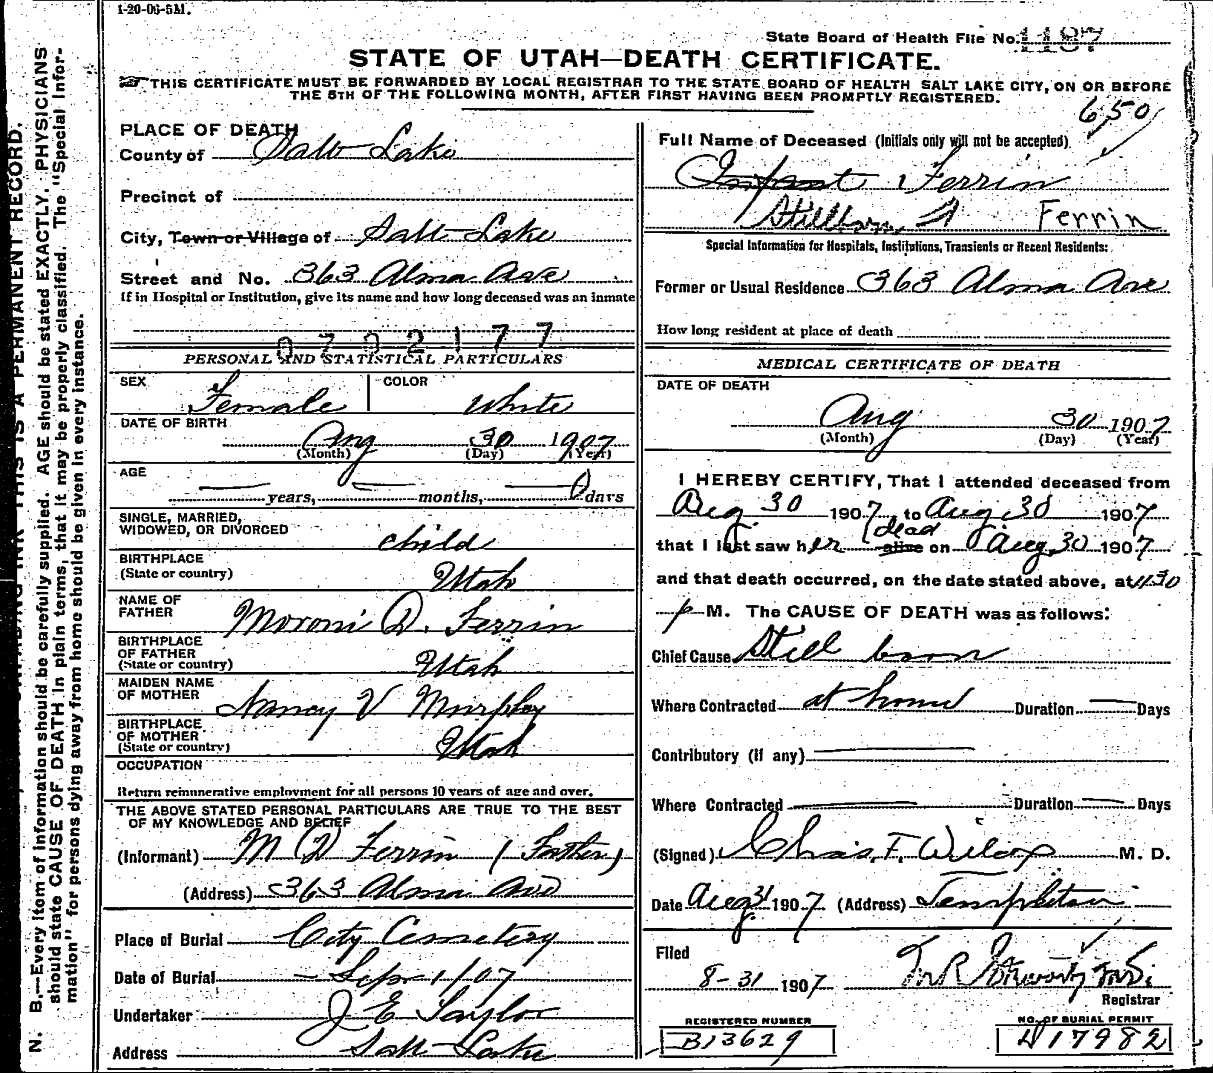 1-20-06-5M.
State Board of Health File No. 1187
STATE OF UTAH—DEATH CERTIFICATE.
THIS CERTIFICATE MUST BE FORWARDED BY LOCAL REGISTRAR TO THE STATE BOARD OF HEALTH SALT LAKE CITY, ON OR BEFORE
THE 5TH OF THE FOLLOWING MONTH, AFTER FIRST HAVING BEEN PROMPTLY REGISTERED.
650
N. B.—Every item of information should be carefully supplied. AGE should be stated EXACTLY. PHYSICIANS
should state CAUSE OF DEATH in plain terms, that it may be properly classified. The "Special Infor-
mation" for persons dying away from home should be given in every instance.
THIS IS A PERMANENT RECORD.
PLACE OF DEATH
County of Salt Lake
Precinct of
City, Town or Village of Salt Lake
Street and No. 363 Alma Ave
If in Hospital or Institution, give its name and how long deceased was an inmate
0702177
PERSONAL AND STATISTICAL PARTICULARS
SEX Female COLOR White
DATE OF BIRTH
Aug 30 1907
(Month) (Day) (Year)
AGE
— years, — months, — 0 days
SINGLE, MARRIED,
WIDOWED, OR DIVORCED child
BIRTHPLACE
(State or country) Utah
NAME OF
FATHER Moroni D. Ferrin
BIRTHPLACE
OF FATHER
(State or country) Utah
MAIDEN NAME
OF MOTHER Nancy V Murphy
BIRTHPLACE
OF MOTHER
(State or country) Utah
OCCUPATION
Return remunerative employment for all persons 10 years of age and over.
THE ABOVE STATED PERSONAL PARTICULARS ARE TRUE TO THE BEST
OF MY KNOWLEDGE AND BELIEF
(Informant) M D Ferrin (Father)
(Address) 363 Alma Ave
Place of Burial City Cemetery
Date of Burial Sep 1/07
Undertaker J E Taylor
Address Salt Lake
Full Name of Deceased (Initials only will not be accepted)
Infant Ferrin
Stillborn Ferrin
Special Information for Hospitals, Institutions, Transients or Recent Residents:
Former or Usual Residence 363 Alma Ave
How long resident at place of death
MEDICAL CERTIFICATE OF DEATH
DATE OF DEATH
Aug 30 1907
(Month) (Day) (Year)
I HEREBY CERTIFY, That I attended deceased from
Aug. 30 1907, to Aug. 30 1907
that I last saw her alive dead on Aug. 30 1907
and that death occurred, on the date stated above, at 4:30
p M. The CAUSE OF DEATH was as follows:
Chief Cause Still born
Where Contracted at home Duration — Days
Contributory (If any)
Where Contracted — Duration — Days
(Signed) Chas. F. Wilcox M. D.
Date Aug 31 1907 (Address) Templeton
Filed
8-31 1907
Registrar
REGISTERED NUMBER
B13629
NO. OF BURIAL PERMIT
17982